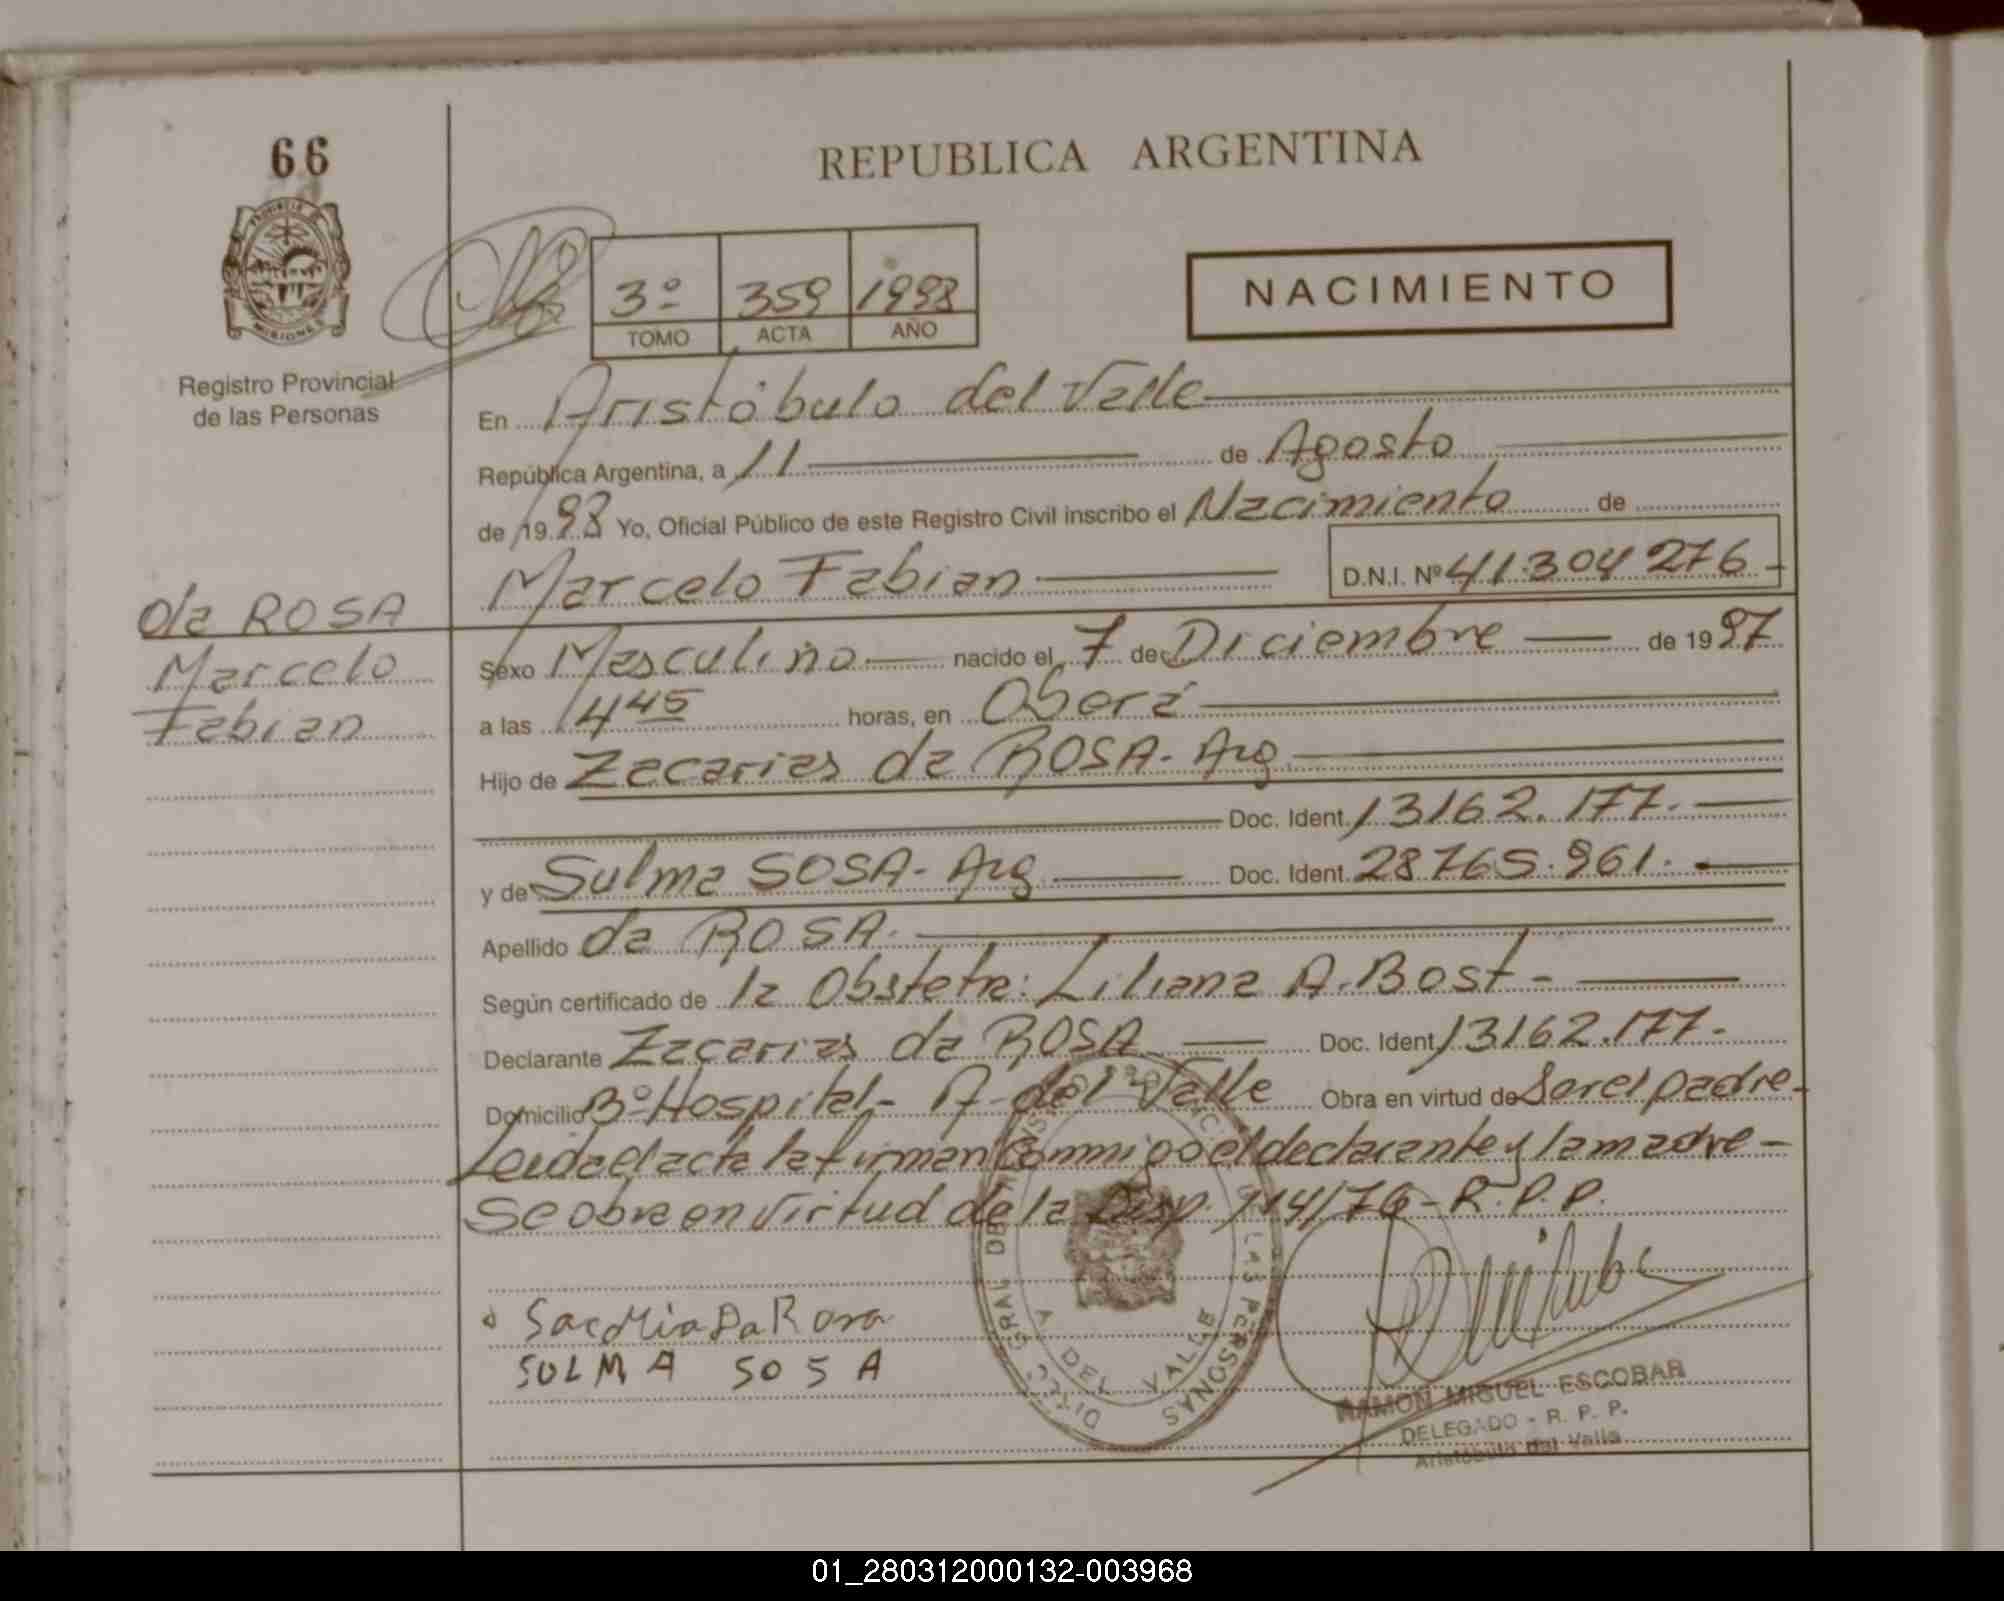 66
REPUBLICA ARGENTINA
PROVINCIA DE
MISIONES
Registro Provincial
de las Personas
3º 359 1998
TOMO ACTA AÑO
NACIMIENTO
En Aristóbulo del Valle
República Argentina, a 11 de Agosto
de 1998 Yo, Oficial Público de este Registro Civil inscribo el Nacimiento de
Marcelo Fabian D.N.I. Nº 41.304.276-
da ROSA
Marcelo
Fabian
Sexo Masculino nacido el 7 de Diciembre de 1997
a las 14 45 horas, en Oberá
Hijo de Zacarias da ROSA- Arg
Doc. Ident. 13162.177.
y de Sulma SOSA- Arg Doc. Ident. 28765.961.
Apellido da ROSA.
Según certificado de la Obstetra: Liliana A. Bost-
Declarante Zacarias da ROSA Doc. Ident. 13162.177.
Domicilio Bº Hospital- A. del Valle Obra en virtud de Ser el padre-
Leida el acta la firman conmigo el declarante y la madre-
Se obra en virtud de la Disp. 114/76-R.P.P.
Da Rosa
SULMA SOSA
DITEC. GRAL DE LAS PERSONAS
A DEL VALLE
RAMON MIGUEL ESCOBAR
DELEGADO - R. P. P.
Aristóbulo del Valle
01_280312000132-003968